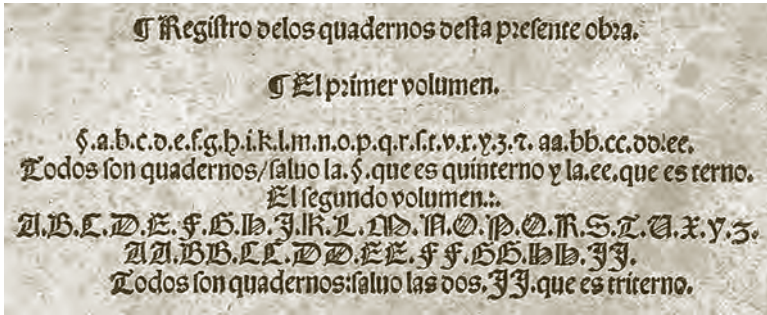 ¶ Regiſtro delos quadernos deſta preſente obra.
¶ El primer volumen.
§.a.b.c.d.e.f.g.h.i.k.l.m.n.o.p.q.r.ſ.t.v.x.y.z.⁊. aa.bb.cc.dd.ee.
Todos ſon quadernos/ſaluo la.§.que es quinterno y la.ee.que es terno.
El ſegundo volumen.:.
A.B.C.D.E.F.G.H.J.K.L.M.N.O.P.Q.R.S.T.U.X.Y.Z.
AA.BB.CC.DD.EE.FF.GG.HH.JJ.
Todos ſon quadernos:ſaluo las dos.JJ.que es triterno.